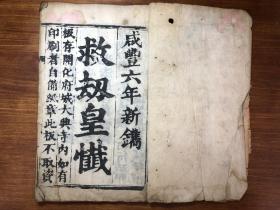 咸豐六年新鐫
救劫皇懺
板存開化府城大興寺內如有
印刷者自備紙章此板不取資